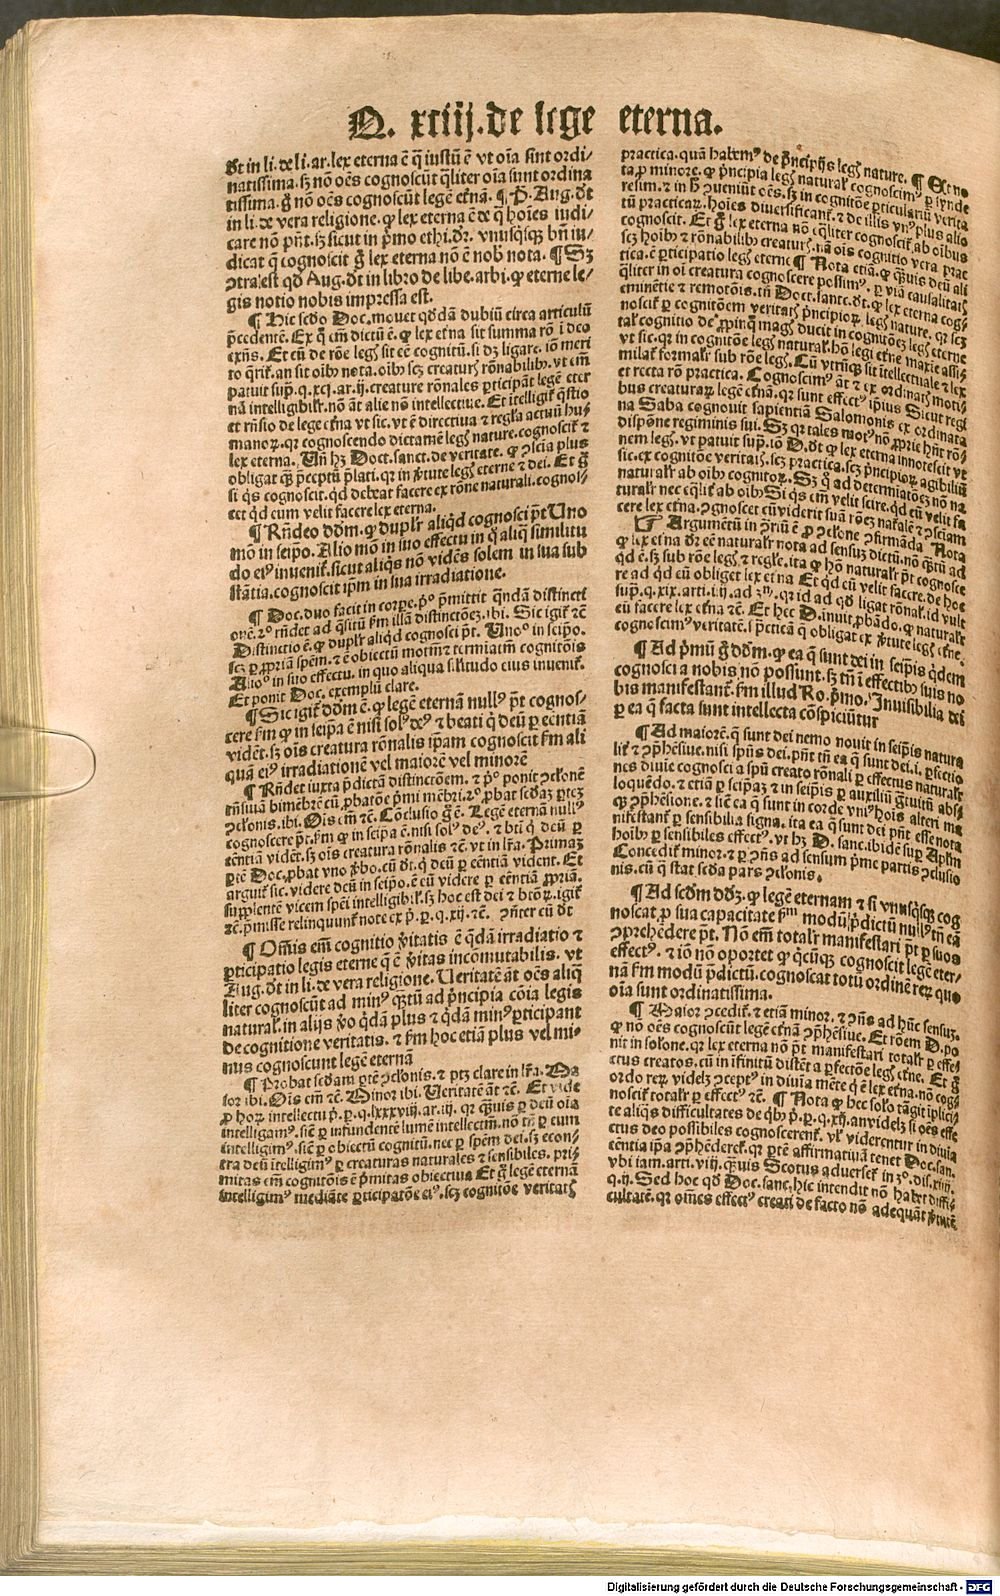 Q. xciij. de lege eterna.
dt in li. de li. ar. lex eterna ē q̄ iustū ē vt oīa sint ordi/
natissima. sꝫ nō oēs cognoscūt q̄liter oīa sunt ordina
tissima. gͦ nō oēs cognoscūt legē etn̄ā. ¶ P̄. Aug. dt
in li. de vera religione. ꝙ lex eterna ē de q̄ hoīes iudi/
care nō pn̄t. sꝫ sicut in pͥmo ethi. dr̄. vnusqͥsqꝫ bn̄ iu/
dicat q̄ cognoscit gͦ lex eterna nō ē nob̄ nota. ¶ Sꝫ
ꝯtra est qd̄ Aug. dt in libro de libe. arbi. ꝙ eterne le/
gis notio nobis impressa est.
¶ Hic scd̄o Doc. mouet qd̄dā dubiū circa articulū
p̄cedentē. Ex q̄ em̄ dictū ē. ꝙ lex etn̄a sit summa rō ī deo
exn̄s. Et cū de rōe leḡ sit eē cognitū. si dꝫ ligare. iō meri
to q̄rit̄. an sit oib̄ nota. oib̄ scꝫ creatur̄ rōnabilib̄. vt em̄
patuit sup̄. q. xcj. ar. ij. creature rōnales ꝑticipāt legē eter
nā intelligibilr̄. nō āt alie nō intellectiue. Et itelligit̄ q̄stio
et rn̄sio de lege etn̄a vt sic. vt ē directiua ⁊ regl̄a actuū hu/
manoꝝ. qꝛ cognoscendo dictamē leḡ nature. cognoscit̄ ⁊
lex eterna. Un̄ hꝫ Doct. sanct. de veritate. ꝙ ꝯscīa plus
obligat qꝫ p̄ceptū p̄lati. qꝛ in v̄tute leḡ eterne ⁊ dei. Et gͦ
si qͥs cognoscit. qd̄ debeat facere ex rōne naturali. cognos/
cet qd̄ eum velit facere lex eterna.
¶ Rn̄deo dd̄m. ꝙ duplr̄ aliqd̄ cognosci pt̄. Uno
mō in seipo. Alio mō in suo effectu in q̄ aliq̄ similitu
do eiꝰ inuenit̄. sicut aliqͥs nō vidēs solem in sua sub
stātia. cognoscit ipm̄ in sua irradiatione.
¶ Doc. duo facit in corpe. pͦ. p̄mittit qn̄dā distincti
onē. 2ͦ. rn̄det ad q̄sitū ẜm illā distinctōeꝫ. ibi. Sic igit̄ ⁊c̄
Distinctio ē. ꝙ duplr̄ aliqd̄ cognosci pt̄. Unoͦ in seipo.
scꝫ ꝑ ꝓpriā spēm. ⁊ ē obiectū motiuū ⁊ termiatiuū cognitōis
Alioͦ in suo effectu. in quo aliqua sil̄itudo eius inuenit̄.
Et ponit Doc. exemplū clare.
¶ Sic igit̄ dd̄m ē. ꝙ legē eternā nullꝰ pt̄ cognos/
cere ẜm ꝙ in seipa ē nisi solꝰ deꝰ ⁊ beati q̄ deū ꝑ eēntiā
vidēt. sꝫ oīs creatura rōnalis ipam cognoscit ẜm ali
quā eiꝰ irradiationē vel maiorē vel minorē
¶ Rn̄det iuxta p̄dictā distinctōem. ⁊ pͦ. ponit ꝯclōnē
rn̄siuā bimēbrē cū ꝓbatōe pͥmi mēbri. 2ͦ. ꝓbat scd̄aꝫ ꝑteꝫ
ꝯclōnis. ibi. Oīs em̄ ⁊c̄. Cōclusio gͦ ē. Legē eternā nullꝰ
cognoscere pt̄. ẜm ꝙ in seipa ē. nisi solꝰ deꝰ. ⁊ bt̄i q̄ deū ꝑ
eēntiā vidēt. sꝫ oīs creatura rōnalis ⁊c̄. vt in lr̄a. Primaꝫ
ꝑtē Doc. ꝓbat vno v̄bo. cū dt̄. q̄ deū ꝑ eēntiā vident. Et
arguit̄ sic. videre deū in seipo. ē eū videre ꝑ eēntiā ꝓpriā.
supplentē vicem spēi intelligibil̄. sꝫ hoc est dei ⁊ btōꝝ. igit̄
⁊c̄. p̄misse relinquunt̄ note ex p̄. p. q. xij. ⁊c̄. ꝯn̄ter cū dt
¶ Oīs em̄ cognitio v̄itatis ē q̄dā irradiatio ⁊
ꝑticipatio legis eterne q̄ ē v̄itas incomutabilis. vt
Aug. dt in li. de vera religione. Ueritatē āt oēs aliq̄
liter cognoscūt ad minꝰ qꝫtū ad pͥncipia cōia legis
natural̄. in alijs v̄o q̄dā plus ⁊ q̄dā minꝰ ꝑticipant
de cognitione veritatis. ⁊ ẜm hoc etiā plus vel mi/
nus cognoscunt legē eternā
¶ Probat scd̄am ꝑtē ꝯclōnis. ⁊ ptꝫ clare in lr̄a. Ma
ior ibi. Oīs em̄ ⁊c̄. Minor ibi. Ueritatē āt ⁊c̄. Et vide
ꝓ hoꝝ intellectu p̄. p. q. lxxxviij. ar. iij. qꝛ quis ꝑ deū oīa
intelligamꝰ. sic̄ ꝑ infundentē lumē intellectui. nō tn̄ ꝑ eum
intelligimꝰ. sic̄ ꝑ obiectū cognitū. nec ꝑ spēm dei. sꝫ econ/
tra deū itelligimꝰ ꝑ creaturas naturales ⁊ sensibiles. pri/
mitas em̄ cognitōis ē pͥmitas obiectiua Et gͦ legē eternā
intelligimꝰ mediāte ꝑticipatōe eiꝰ. scꝫ cognitōe veritat̄
practica. quā habemꝰ de pͥncipijs leḡ nature. ¶ Est no
ta ꝓ minore. ꝙ pͥncipia leḡ natural̄ cognoscimꝰ ꝑ synde
resim. ⁊ in h̄ ꝯueniūt oēs. sꝫ in cognitōe ꝑticulariū verita
tū practicaꝝ. hoīes diuersificant̄. ⁊ de illis vnꝰ plus alio
cognoscit. Et gͦ lex eterna nō eq̄liter cognoscit̄ ab oībus
scꝫ hoīb̄ ⁊ rōnabilib̄ creatur̄. nā oīs cognitio vera prac
tica. ē ꝑticipatio leḡ eterne ¶ Nota etiā. ꝙ quis deū ali
q̄liter in oī creatura cognoscere possimꝰ. ꝑ viā causalitat̄
eminētie ⁊ remotōis. tn̄ Doct. sancte. dt. ꝙ lex eterna cog/
noscit̄ ꝑ cognitōem veritat̄ pͥncipioꝝ leḡ nature. qꝛ scꝫ
tal̄ cognitio de ꝓpinq̄ magꝭ ducit in cognitōeꝫ leḡ eterne
vt sic. qꝛ in cognitōe leḡ natural̄. hō legi etn̄e maxie assi/
milat̄ formalr̄ sub rōe leḡ. Cū vtrūqꝫ sit itellectuale ⁊ lex
et recta rō practica. Cognoscimꝰ āt ⁊ ex ordinat̄ moti/
bus creaturaꝝ legē etn̄ā. qꝛ sunt effectꝰ ipius Sicut regi
na Saba cognouit sapientiā Salomonis ex ordinata
dispōne regiminis sui. Sꝫ qꝛ tales motꝰ nō ꝓprie hn̄t rō/
nem leḡ. vt patuit sup̄. iō D. dt ꝙ lex eterna innotescit vt
sic. ex cognitōe veritat̄. scꝫ practica. scꝫ pͥncipioꝝ agibiliū
naturalr̄ ab oib̄ cognitoꝝ. Sꝫ q̄ ad determiatōeꝫ nō na
turalr̄ nec eq̄lit̄ ab oib̄ Si qͥs em̄ velit scire. qd̄ eū velit fa
cere lex etn̄a. ꝯgnoscet cū viderit suā rōeꝫ nat̄alē ⁊ ꝯsciam
☞ Argumētū in ꝯͬiū ē ꝓ ꝯclōne ꝯfirmāda. Nota
ꝙ lex etn̄a dr̄ eē naturalr̄ nota ad sensuꝫ dictū. nō qꝫtū ad
qd̄ ē. sꝫ sub rōe leḡ ⁊ regl̄e. ita ꝙ hō naturalr̄ pt̄ cognosce
re ad qd̄ eū obliget lex etn̄a Et qd̄ eū velit facere. de hoc
sup̄. q. xix. arti. iij. ad 3ᵐ. qꝛ id ad qd̄ ligat rōnal̄. id vult
eū facere lex etn̄a ⁊c̄. Et hec D. inuit ꝓbādo. ꝙ naturalr̄
cognoscimꝰ veritatē. ī pͣcticā q̄ obligat ex v̄tute leḡ etn̄e.
¶ Ad pͥmū gͦ dd̄m. ꝙ ea q̄ sunt dei in seipis qͥdem
cognosci a nobis nō possunt. sꝫ tn̄ ī effectib̄ suis no
bis manifestant̄. ẜm illud Ro. pͥmo. Inuisibilia dei
ꝑ ea q̄ facta sunt intellecta cōspiciūtur
¶ Ad maiorē. q̄ sunt dei nemo nouit in seipis natura
lit̄ ⁊ ꝯp̄hēsiue. nisi spūs dei. pn̄t tn̄ ea q̄ sunt dei. i. ꝑfectio
nes diuie cognosci a spū creato rōnali ꝑ effectus naturalr̄
loquēdo. ⁊ etiā ꝑ seipaꝫ ⁊ in seipis ꝑ auxiliū gͣtuitū absꝫ
qꝫ ꝯp̄hēsione. ⁊ sic̄ ea q̄ sunt in corde vniꝰ hoīs alteri ma
nifestant̄ ꝑ sensibilia signa. ita ea q̄ sunt dei pn̄t esse nota
hoīb̄ ꝑ sensibiles effectꝰ. vt hꝫ D. sanc. ibidē suꝑ Apl̄m
Concedit̄ minor. ⁊ ꝑ ꝯn̄s ad sensum pͥme partis ꝯclusio
nis. cū q̄ stat scd̄a pars ꝯclōnis.
¶ Ad scd̄m dd̄ꝫ. ꝙ legē eternam ⁊ si vnusqͥsqꝫ cog
noscat ꝓ sua capacitate ẜm modū p̄dictū nullꝰ tn̄ eā
ꝯprehēdere pt̄. Nō em̄ totalr̄ manifestari pt̄ ꝑ suos
effectꝰ. ⁊ iō nō oportet ꝙ qͥcūqꝫ cognoscit legē eter/
nā ẜm modū p̄dictū. cognoscat totū ordinē reꝝ quo
oīa sunt ordinatissima.
¶ Maior ꝯcedit̄. ⁊ etiā minor. ⁊ ꝯn̄s ad hūc sensuꝫ.
ꝙ nō oēs cognoscūt legē etn̄ā ꝯp̄hēsiue. Et rōem D. po
nit in solōne. qꝛ lex eterna nō pt̄ manifestari totalr̄ ꝑ effe/
ctus creatos. cū in īfinitū distēt a ꝑfectōe leḡ etn̄e. Et gͦ
ordo reꝝ videlꝫ ꝯceptꝰ in diuia mēte q̄ ē lex etn̄a. nō cog/
noscit̄ totalr̄ ꝑ effectꝰ ⁊c̄. ¶ Nota ꝙ hec solo tāgit iplici/
te aliqͣs difficultates de qͥb̄ p̄. p. q. xij. an videlꝫ si oēs effe
ctus deo possibiles cognoscerent̄. vl̄ viderentur in diuia
eēntia ipa ꝯp̄hēderet̄. qꝛ ꝑtē affirmatiuā tenet Doc. san.
vbi iam. arti. viij. quis Scotus aduerset̄ in 3ͦ. dis. xiiij.
q. ij. Sed hoc qd̄ Doc. sanc. hic intendit nō habet diffi/
cultatē. qꝛ om̄es effectꝰ creati de facto nō adequāt v̄tutē
Digitalisierung gefördert durch die Deutsche Forschungsgemeinschaft - DFG